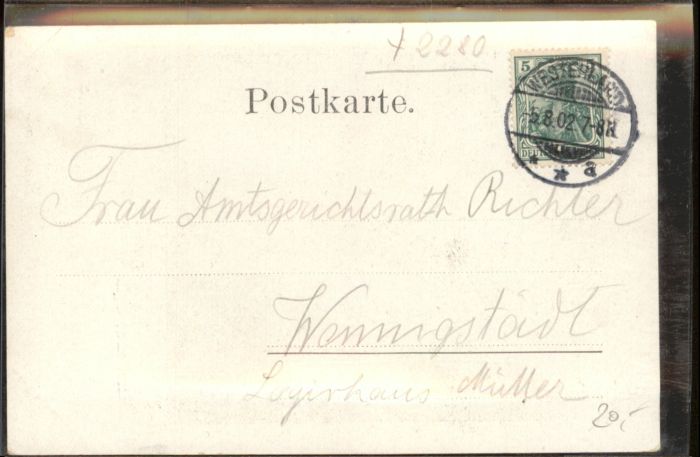 + 2280
Postkarte.
5
WESTERLAND
5.8.02 7-8N
* * a
Frau Amtsgerichtsrath Richter
Wennigstädt
Logirhaus Müller
20,-